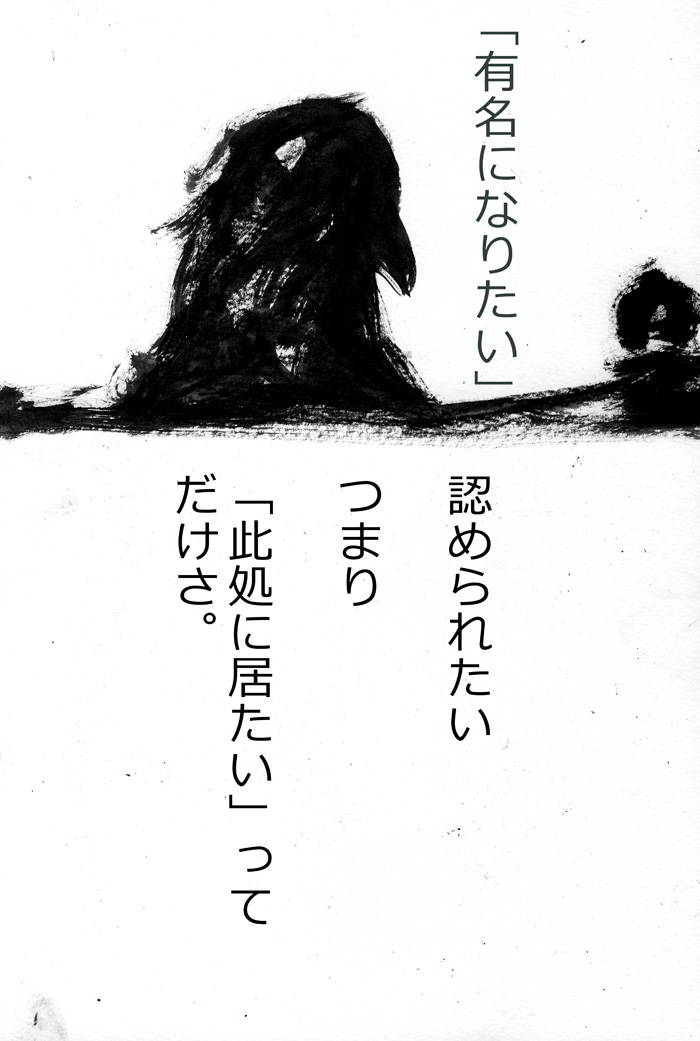 「有名になりたい」
認められたい
つまり
「此処に居たい」って
だけさ。